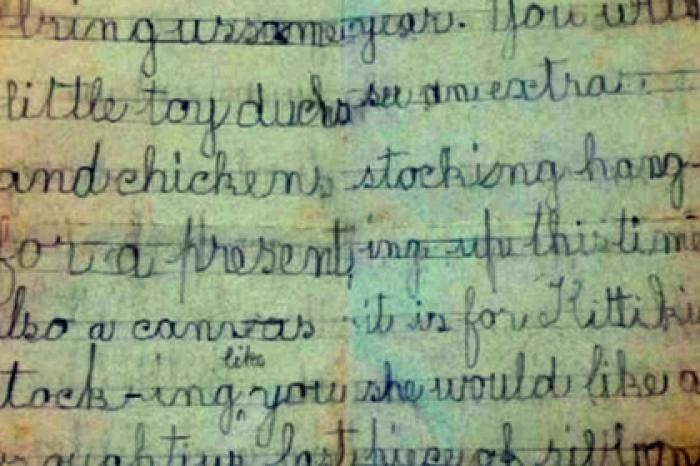 bring us some
little toy ducks
and chickens
for a present,
lso a canvas
like
tock-ing you
last
year. You will
see an extra
stocking hang-
ing up this time
it is for
she would like a
piece of ribbon